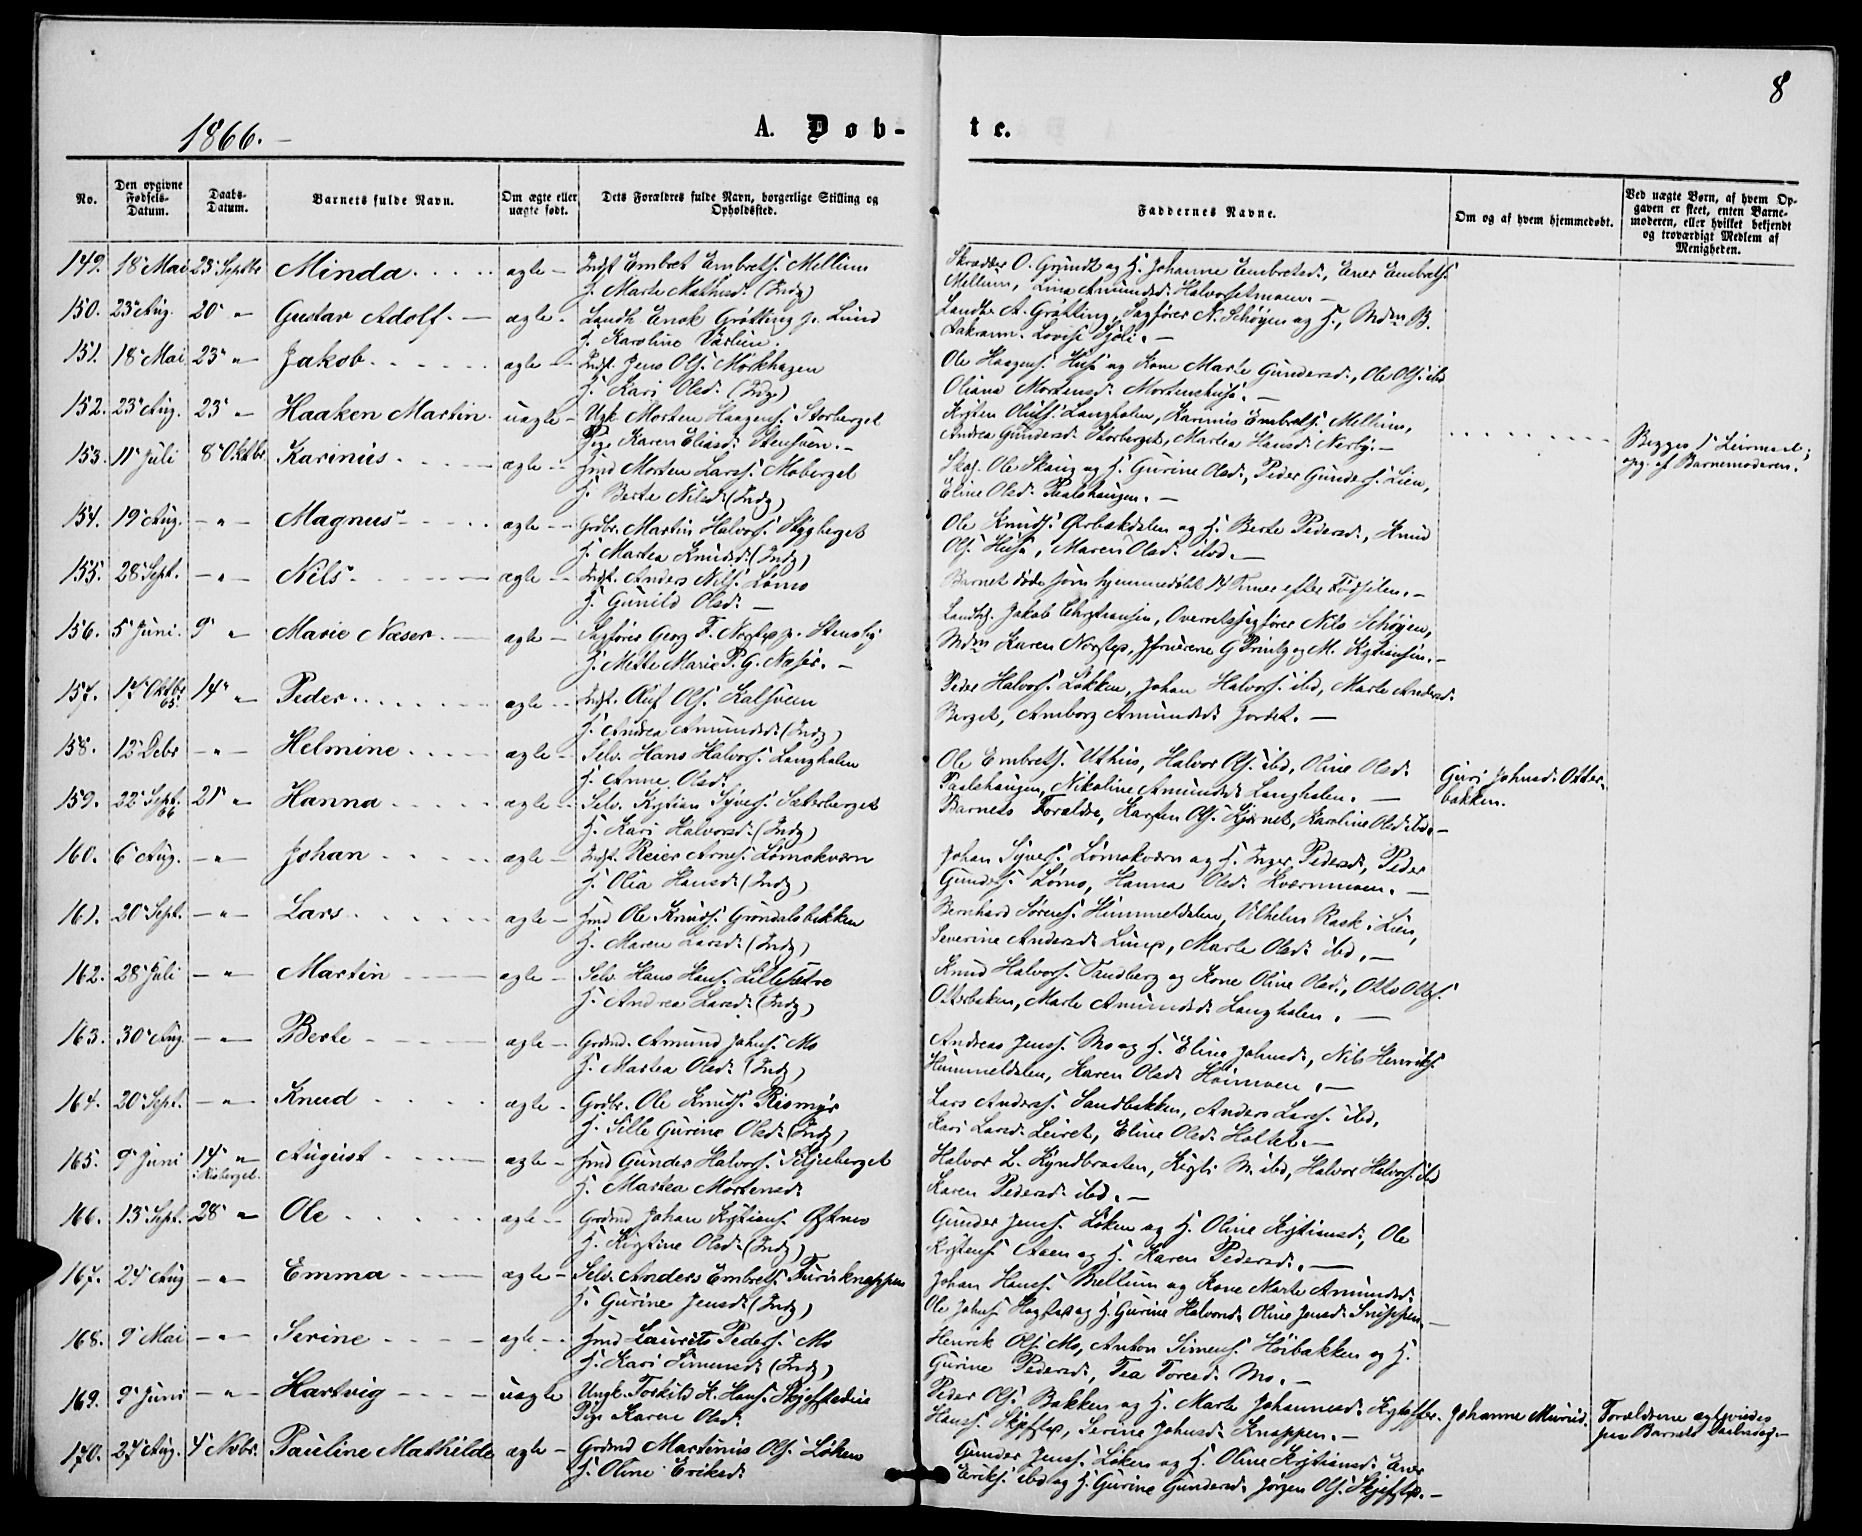 8
1866.
A. Døb-
te.
No.
Den opgivne Fødsels-Datum.
Daabs-Datum.
Barnets fulde Navn.
Om ægte eller uægte født.
Dets Forældres fulde Navn, borgerlige Stilling og Opholdsted.
Faddernes Navne.
Om og af hvem hjemmedøbt.
Ved uægte Børn, af hvem Opgaven er skeet, enten Barnemoderen, eller hvilket bekjendt og troværdigt Medlem af Menigheden.
149. 18 Mai 23 Septbr Minda ægte Indst Embret Embrets. Mellum
H. Marte Mathisd. (Indg)
Skrædder O. Grundt og H. Johanne Embretsd., Ener Embrets.
Mellum, Lina Amundsd. Halvorsetmoen.
150. 23 Aug. 20 " Gustav Adolf. ægte Landh Enok Grøtting p. Lund
H. Karoline
Landh. A. Grøtting, Sagfører N. Schøyen og H., Mdm B.
Lovise
151. 18 Mai 23 " Jakob ægte Indst. Jens Ols. Mørkhagen
H. Kari Olsd. (Indg)
Ole Haagens. Huse og Kone Marte Gundersd., Ole Ols. ibd
Oliana Mortensd. Mortenshuse.
152. 23 Aug. 23 " Haaken Martin uægte Ugk. Morten Haagens. Storberget
Pige Karen Eliasd. Stensveen.
Langhalen, Karinus Embrets. Mellum,
Andrea Gundersd. Storberget, Martea Hansd. Nerby.
Begges 1 Leirmaal;
opg. af Barnemoderen.
153. 11 Juli 8 Oktbr Karinus ægte Hmd Morten Lars. Moberget
H. Berte Nilsd. (Indg)
Skol. Ole Skaug og H. Gurine Olsd., Peder Gunders. Lien,
Eline Olsd. Paalshaugen.
154. 19 Aug. - " - Magnus ægte Grdbr. Martin Halvors. Skybberget
H. Martea Knudsd. (Indg)
Ole Knuds. Ørbækdalen og H. Berte Pedersd., Knud
Ols. Huse, Maren Olsd. ibd.
155. 28 Sept. - " - Nils ægte Indst. Anders Nils. Lømo
H. Gunild Olsd.
Barnet døde som hjemmedøbt 14 Timer efter Fødselen.
156. 5 Juni. 9 " Marie Næser ægte Sagfører Georg F. Norstep p. Stensby
H. Mette Marie P. G. Næser.
Jakob Christiansen, Overretssagfører Nils Schøyen,
Mdm Karen Jfruerene G Printz og M. Kristiansen.
157. 17 Oktbr 65. 14 " Peder ægte Indst. Oluf Ols. Kalsveen
H. Andrea Amundsd. (Indg)
Peder Halvors. Løkken, Johan Halvors. ibd, Marte Andersd.
Berget, Amborg Amundsd. Jordet.
158. 12 Debr - " - Helmine ægte Selv. Hans Halvors. Langhalen
H. Anne Olsd.
Ole Embrets. Uthus, Halvor Ols. ibd, Oline Olsd.
Paalshaugen, Nikoline Amundsd. Langhalen.
Guri Johnsd. Otter-
bakken.
159. 22 Sept. 66 21 " Hanna ægte Selv. Kristian Syvers. Sæterberget
H. Kari Halvorsd. (Indg)
Barnets Forældre, Karsten Ols. Kjernet, Karoline Olsd ibd.
160. 6 Aug. - " - Johan ægte Indst. Reier Arnes. Lømokværn
H. Olia Hansd. (Indg)
Johan Syvers. Lømokværn og H. Inger Pedersd., Peder
Gunders. Lømo, Hanna Olsd. Kværnmoen.
161. 20 Sept. - " - Lars ægte Hmd Ole Knuds. Grøndalsbakken
H. Maren Larsd. (Indg)
Bernhard Sørens. Hummeldalen, Vilhelm Rask i Lien,
Severine Andersd. Marte Olsd. ibd.
162. 28 Juli - " - Martin ægte Selv. Hans Hans. Lillesætre
H. Andrea Larsd. (Indg)
Knud Halvors. Sandberg og Kone Oline Olsd., Otto Ottos.
Otterbaken, Marte Amundsd. Langhalen.
163. 30 Aug. - " - Berte ægte Grdmd. Amund Johns. Mo
H. Martea Olsd. (Indg)
Andreas Jens. Mo og H. Eline Johnsd., Nils Henriks.
Hummeldalen, Karen Olsd. Høimoen.
164. 20 Sept. - " - Knud ægte Grdbr. Ole Knuds. Rismyr
H. Sille Gurine Olsd. (Indg)
Lars Anders. Sandbakken, Anders Lars. ibd,
Kari Larsd. Leiret, Eline Olsd. Holtet.
165. 9 Juni 14 " i Risberget. August ægte Hmd Gunder Halvors. Kiljeberget
H. Martea Mortensd.
Halvor L. Kyndbraaten, M. ibd, Halvor Halvors. ibd
Karen Pedersd. ibd.
166. 13 Sept. 28 " Ole ægte Grdmd Johan Kristians. Østmo
H. Kristine Olsd. (Indg)
Gunder Jens. Løken og H. Oline Kristiansd., Ole
Kristens. Aaen og H. Karen Pedersd.
167. 24 Aug - " - Emma ægte Selv. Anders Embrets. Furuknappen
H. Gurine Jensd. (Indg)
Johan Hans. Mellum og Kone Marte Amundsd.
Ole Johns. og H. Gurine Halvorsd. Oline Jensd. Snippen.
168. 9 Mai - " - Serine ægte Hmd Laurits Peders. Mo
H. Kari Simensd. (Indg)
Henrik Ols. Mo, Anton Simens. Høibakken og H.
Gurine Pedersd., Tea Toresd. Mo.
169. 9 Juni - " - Hartvig uægte Ungk. Torkild K. Hans. Skjefstadeie
Pige Karen Olsd.
Peder Ols. Bakken og H. Marte Johannesd. Kristoffer
Hans. Serine Johnsd. Knappen.
Johanne Murud.
Forældrene ægteviedes
paa Barnets Daabsdag.
170. 27 Aug. 4 Novbr. Pauline Mathilde ægte Grdmd Martinus Ols. Løken
H. Oline Eriksd.
Gunder Jens. Løken og H. Oline Kristiansd. Ener
Eriks. ibd og H. Gurine Gundersd. Jørgen Ols.